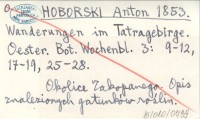 HOBORSKI Anton 1853.
Wanderungen im Tatragebirge.
Oester. Bot. Wochenbl. 3: 9-12,
17-19, 25-28.
Okolice Zakopanego. Opis
znalezionych gatunków roślin.